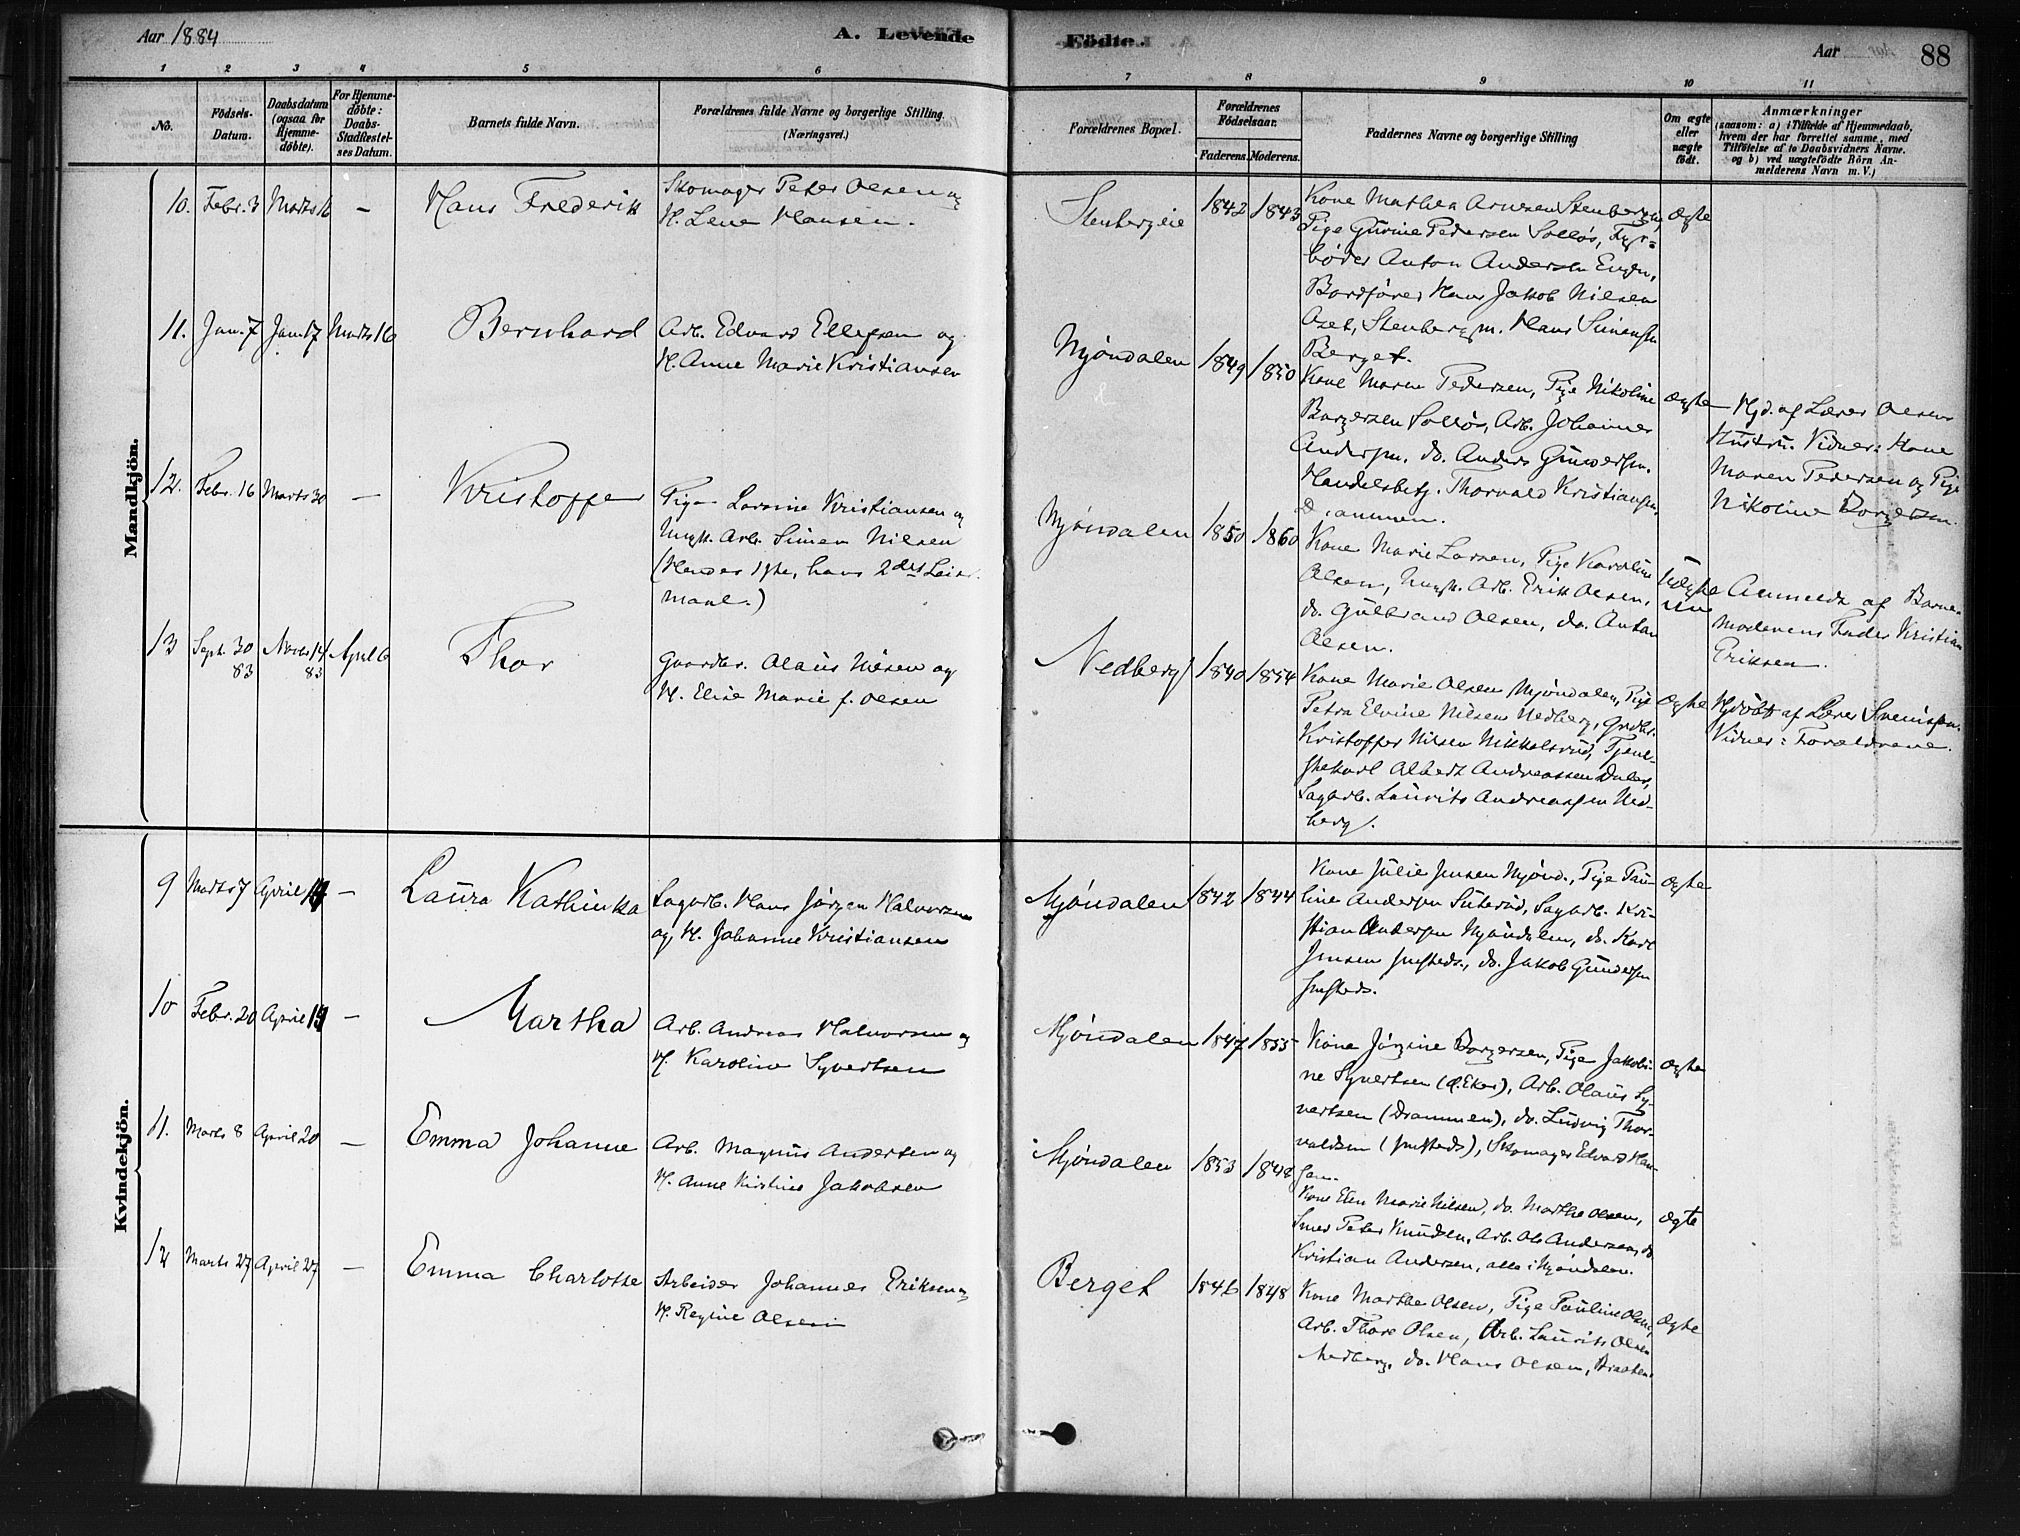 Aar 1884
A. Levende
Födte.
Aar
88
1 2 3 4 5 6 7 8 9 10 11
No.
Födsels-Datum.
Daabsdatum (ogsaa for Hjemme-döbte).
For Hjemme-döbte: Daabs-Stadfæstel-ses Datum.
Barnets fulde Navn.
Forældrenes fulde Navne og borgerlige Stilling
(Næringsvei.)
Forældrenes Bopæl.
Forældrenes Födselsaar.
Faderens. Moderens.
Faddernes Navne og borgerlige Stilling
Om ægte eller uægte födt.
Anmærkninger
(saasom: a) i Tilfælde af Hjemmedaab,
hvem der har forrettet samme, med
Tilföielse af to Daabsvidners Navne.
og b) ved uægtefödte Börn An-
melderens Navn m. V.)
Mandkjön.
10. Febr. 3 Marts 16 — Hans Frederik
Skomager Peter Olsen og
H. Lene Hansen.
Stenbergeie 1842 1843
Kone Mathea Arnesen Stenbergeie,
Pige Gurine Pedersen Solløs, Fyr-
bøder Anton Andersen Engen,
Bordfører Hans Jakob Nilsen
Aset, Stenberg m. Hans Simensen
Berget.
ægte
11. Jan. 7 Jan. 17 Marts 16 Bernhard
Arb. Edvard Ellefsen og
H. Anne Marie Kristiansen
Mjøndalen 1849 1850
Kone Maren Pedersen, Pige Nikoline
Borgersen Solløs, Arb. Johannes
Andersen, do. Anders Gundersen,
Handelsbetj. Thorvald Kristiansen,
Drammen.
ægte
Hjd. af Lærer Olsens
Hustru. Vidner: Kone
Maren Pedersen og Pige
Nikoline Borgersen.
12. Febr. 16 Marts 30 — Kristoffer
Pige Lovine Kristiansen og
Ungk. Arb. Simen Nilsen
(Hendes 1ste, hans 2det Leier-
maal.)
Mjøndalen 1850 1860
Kone Marie Larsen, Pige Karoline
Olsen, Ungk. Arb. Erik Olsen,
do. Gulbrand Olsen, do. Anton
Olsen.
Uægte
Anmeldt af Barne-
moderens Fader Kristian
Eriksen.
13 Sept. 30 83 Novbr 14 83 April 6 Thor
Gaardbr. Olaus Nilsen og
H. Elise Marie f. Olsen
Nedberg 1840 1854
Kone Marie Olsen Mjøndalen, Pige
Petra Elvine Nilsen Nedberg, Grdbr.
Kristoffer Nilsen Nikkelsrud, Tjene-
stekarl Albert Andreassen Daler,
Sagarb. Laurits Andreassen Ned-
berg.
ægte
Hjdöbt af Lærer Svendsen.
Vidner: Forældrene.
Kvindekjön.
9 Marts 7 April 14 — Laura Kathinka
Sagarb. Hans Jørgen Halvorsen
og H. Johanne Kristiansen
Mjøndalen 1842 1844
Kone Julie Jensen Mjønd., Pige Pau-
line Andersen Suterud, Sagarb. Kri-
stian Andersen Mjøndalen, do. Karl
Jensen smsteds., do. Jakob Gundersen
smsteds.
ægte
10 Febr. 20 April 14 — Martha
Arb. Andreas Halvorsen og
H. Karoline Syvertsen
Mjøndalen 1847 1855
Kone Jørgine Borgersen, Pige Jakobi-
ne Syvertsen (Ø. Eker), Arb. Olaus Sy-
vertsen (Drammen), do. Ludvig Thor-
valdsen (smsteds), Skomager Edvard Han-
sen.
ægte
11. Marts 8 April 20 — Emma Johanne
Arb. Magnus Andersen og
H. Anne Kirstine Jakobsen
Mjøndalen 1853 1848
Kone Elen Marie Nilsen, do. Marthe Olsen,
Smed Peter Knudsen, Arb. Ole Andersen, do.
Kristian Andersen, alle i Mjøndalen.
ægte
12 Marts 27 April 27 — Emma Charlotte
Arbeider Johannes Eriksen og
H. Regine Olsen
Berget 1846 1848
Kone Marthe Olsen, Pige Pauline Olsen,
Arb. Thore Olsen, Arb. Laurits Olsen
Nedberg, do. Hans Olsen, Braaten.
ægte